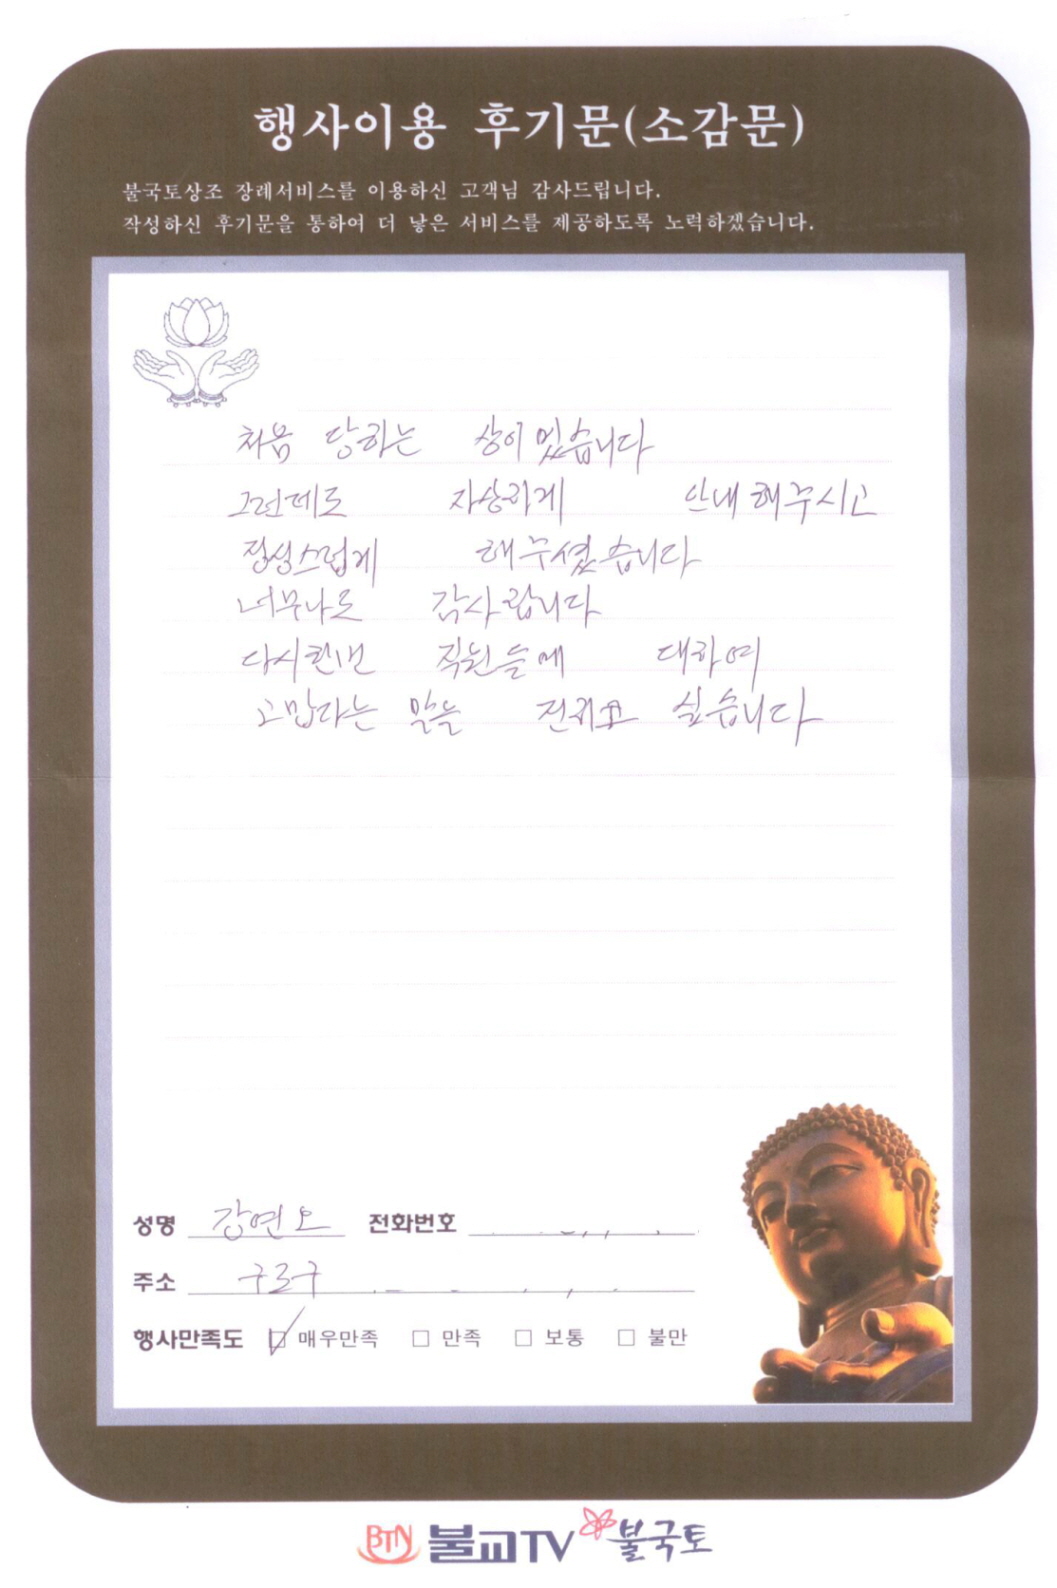 행사이용 후기문(소감문)
불국토상조 장례서비스를 이용하신 고객님 감사드립니다.
작성하신 후기문을 통하여 더 낳은 서비스를 제공하도록 노력하겠습니다.
처음 당하는 상이 었습니다
그런데도 자상하게 안내 해주시고
정성스럽게 해주셨습니다
너무나도 감사랍니다
다시한번 직원들에 대하여
고맙다는 말을 전하고 싶습니다
성명 강연오 전화번호
주소 구로구
행사만족도 매우만족 만족 보통 불만
BTN 불교TV 불국토